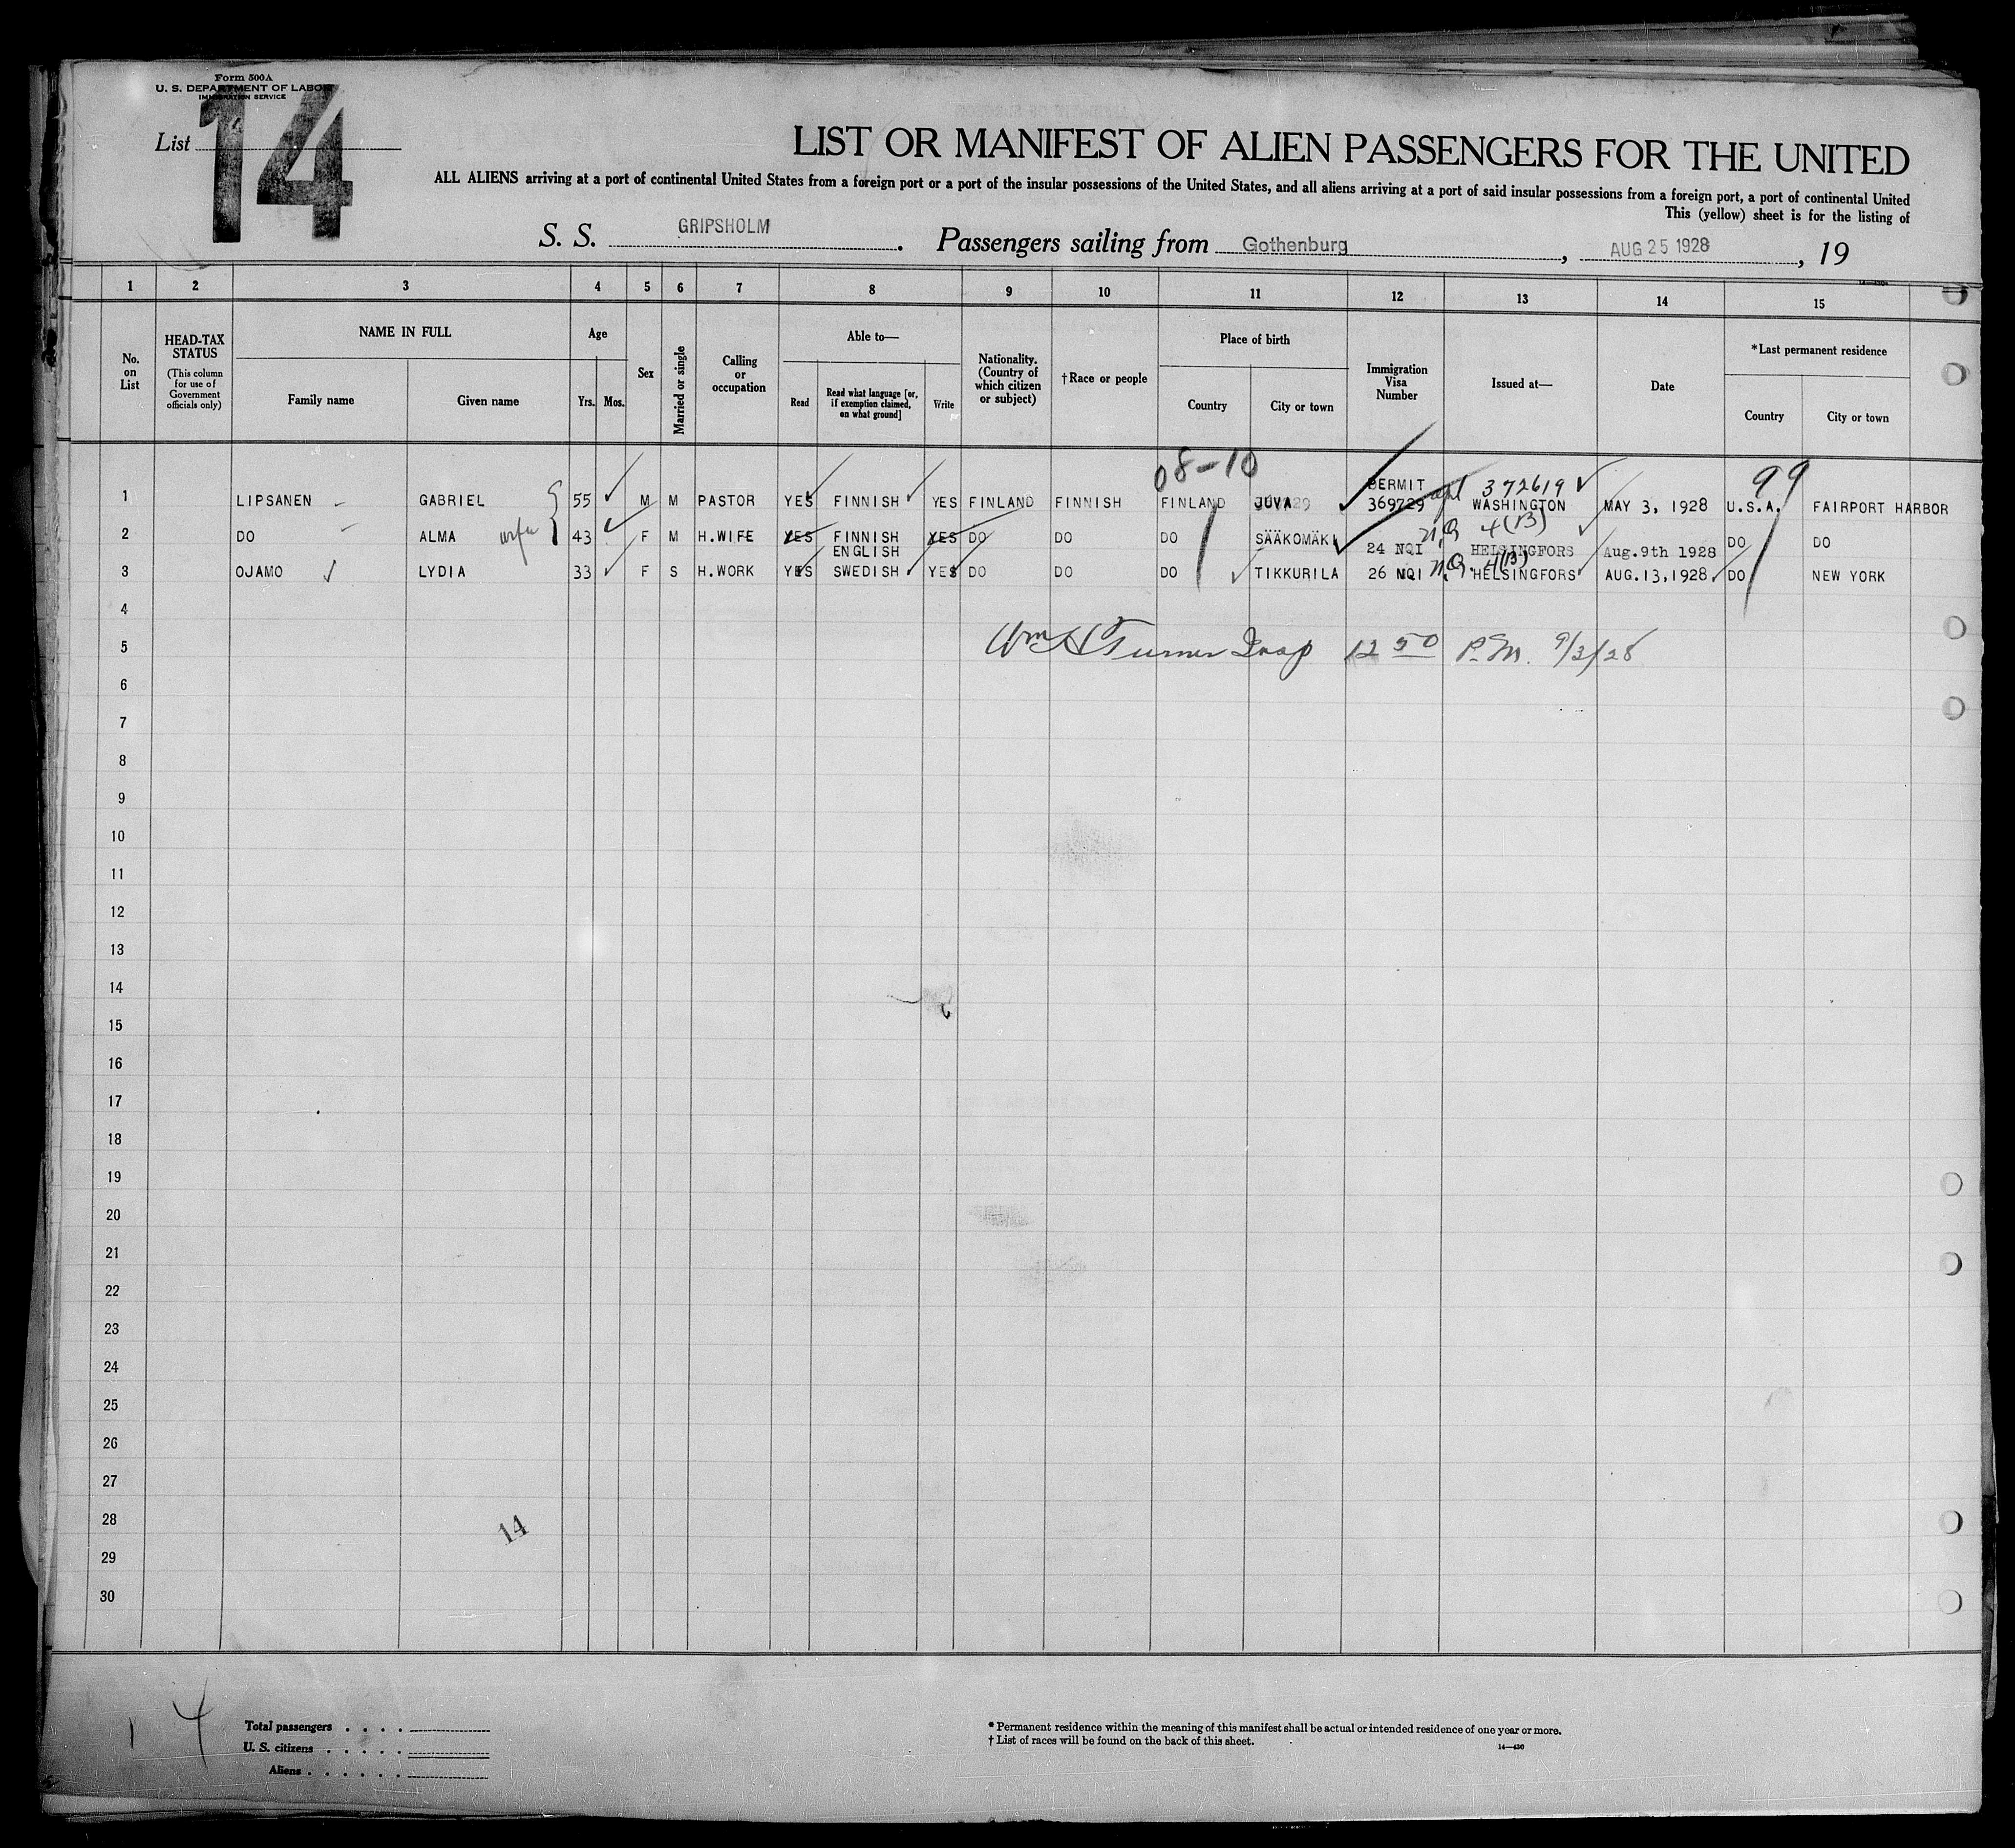 Form 500A
U. S. DEPARTMENT OF LABOR
IMMIGRATION SERVICE
List 14
LIST OR MANIFEST OF ALIEN PASSENGERS FOR THE UNITED
ALL ALIENS arriving at a port of continental United States from a foreign port or a port of the insular possessions of the United States, and all aliens arriving at a port of said insular possessions from a foreign port, a port of continental United
This (yellow) sheet is for the listing of
S. S. GRIPSHOLM. Passengers sailing from Gothenburg, AUG 25 1928, 19
1 2 3 4 5 6 7 8 9 10 11 12 13 14 15
No. on List
HEAD-TAX STATUS
(This column for use of Government officials only)
NAME IN FULL
Family name
Given name
Age
Yrs. Mos.
Sex
Married or single
Calling or occupation
Able to—
Read
Read what language [or, if exemption claimed, on what ground]
Write
Nationality. (Country of which citizen or subject)
†Race or people
Place of birth
Country
City or town
Immigration Visa Number
Issued at—
Date
*Last permanent residence
Country
City or town
08-10
99
PERMIT 372619
1 LIPSANEN GABRIEL 55 M M PASTOR YES FINNISH YES FINLAND FINNISH FINLAND JUVA 369729 WASHINGTON MAY 3, 1928 U.S.A. FAIRPORT HARBOR
N.Q. 4(B)
2 DO ALMA wife 43 F M H.WIFE YES FINNISH YES DO DO DO SÄÄKOMÄKI 24 NQI HELSINGFORS Aug.9th 1928 DO DO
ENGLISH N.Q. 4(B)
3 OJAMO LYDIA 33 F S H.WORK YES SWEDISH YES DO DO DO TIKKURILA 26 NQI HELSINGFORS AUG.13,1928. DO NEW YORK
4
5 Wm H Turner Insp 12 50 P.M. 9/3/28
6
7
8
9
10
11
12
13
14
15
16
17
18
19
20
21
22
23
24
25
26
27
28
14
29
30
14
Total passengers . . . .
U. S. citizens . . . . .
Aliens . . . . . .
* Permanent residence within the meaning of this manifest shall be actual or intended residence of one year or more.
† List of races will be found on the back of this sheet.
14—430